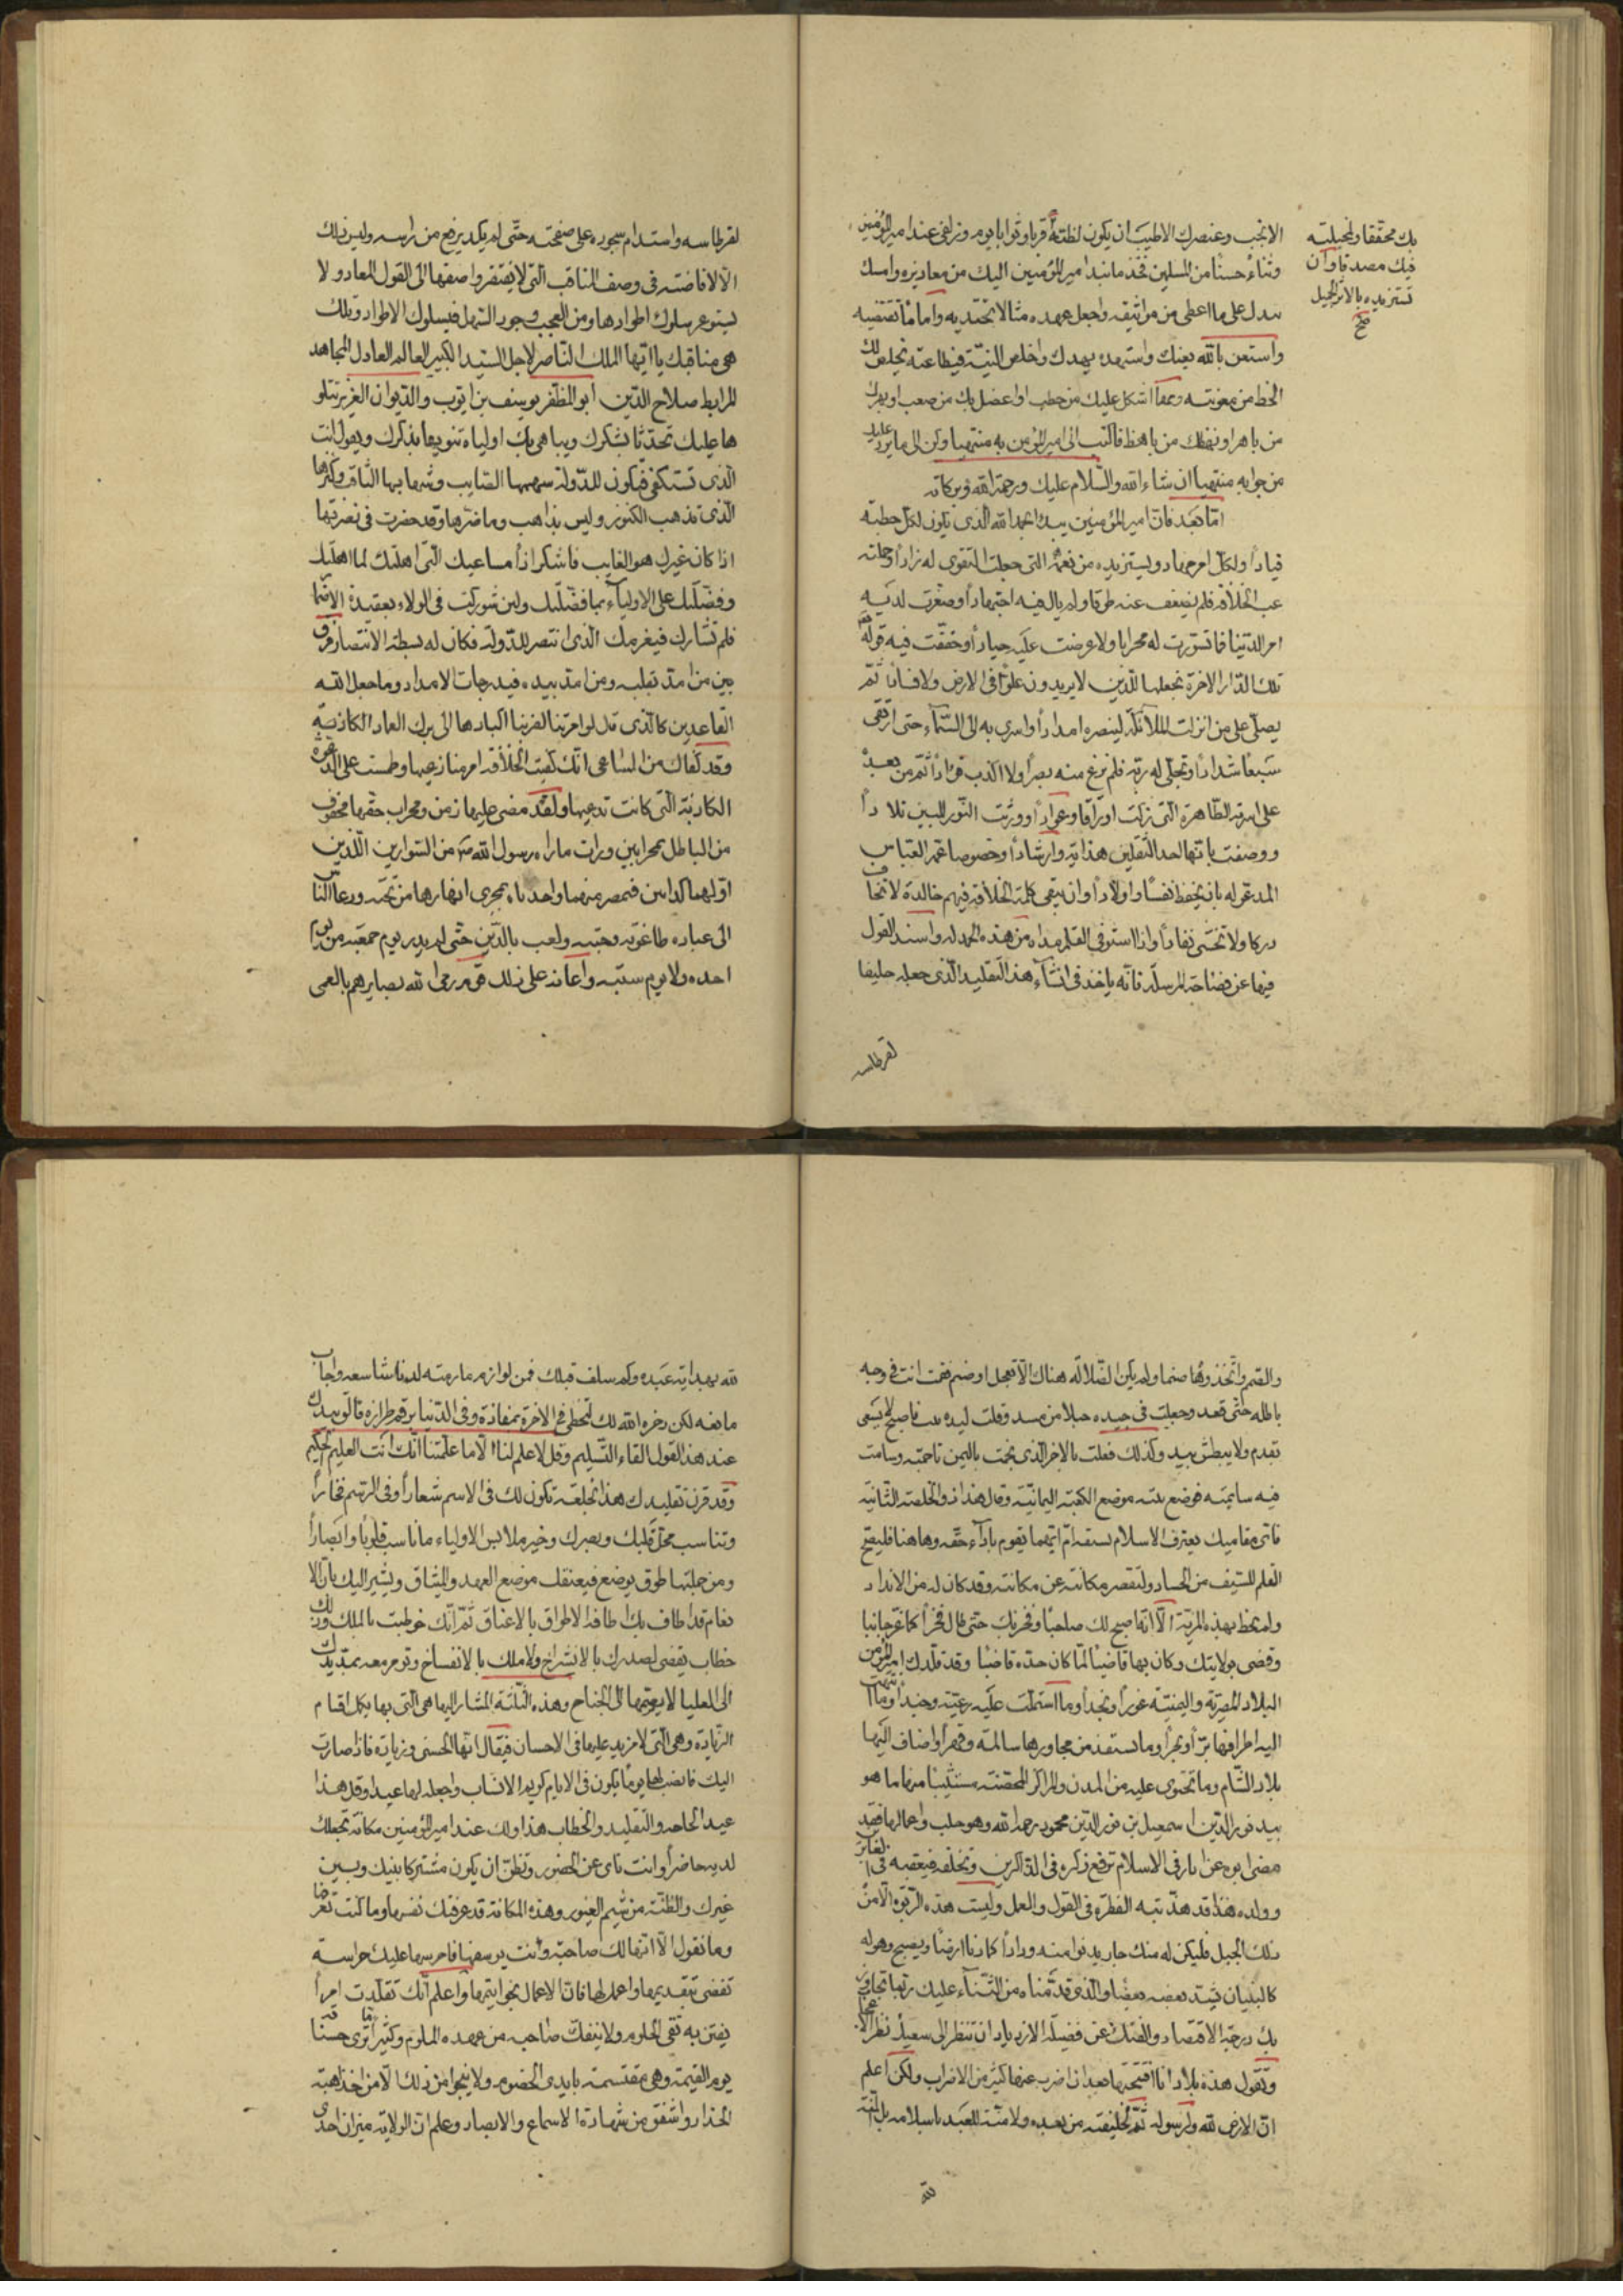 الانجب وعنصرك الاطيب ان يكون لظنه قربا وثوابا يوم وزلفى عند امير المؤمنين
وثناء حسنا من المسلمين فخذ ما نبذ امير المؤمنين اليك من معاذيره وامسك
يدك على ما اعطى من مواثيقه واجعل عهده مثالا تحتذيه واماما تقتفيه
واستعن بالله يعنك واستهده يهدك واخلص النية في طاعته يخلص لك
الحظ من معونته ومهما اشكل عليك من خطب او اعضل بك من صعب او بهرك
من باهر او بهظك من باهظ فاكتب الى امير المؤمنين به منتهيا وكن الى ما يرد عليك
من جوابه منتهيا ان شاء الله والسلام عليك ورحمة الله وبركاته
اما بعد فان امير المؤمنين يبدا بحمد الله الذى يكون لكل خطبة
قيادا ولكل امر مهادا ويستزيده من نعمه التى جعلت التقوى له زادا وحملته
عب الخلافة فلم يضعف عنه طوقا ولم يال فيه اجتهادا وصغرت لديه
امر الدنيا فما تسورت له محرابا ولا عرضت عليه جيادا وحققت فيه قوله
تلك الدار الاخرة نجعلها للذين لا يريدون علوا فى الارض ولا فسادا ثم
يصلى على من انزلت الملائكة لنصره امدادا واسرى به الى السماء حتى ارتقى
سبعا شدادا وتجلى له ربه فلم يزغ منه بصرا ولا اكذب فؤادا ثم من بعده
على اسرته الطاهرة التى زكت اوراقا وعوادا وورثت النور المبين تلادا
ووصفت بانها احد الثقلين هداية وارشادا وخصوصا عمه العباس
المدعو له بان يحفظ نفسا واولادا وان تبقى كلمة الخلافة فيهم خالدة لا تخاف
دركا ولا تخشى نفادا واذا استوفى القلم مداده من هذه الحمدلة واسند القول
فيها عن فصاحته المرسلة فانه ياخذ فى انشاء هذا التقليد الذى جعله حليفا
لقرطاسه
بك محققا ولمخيلته
فيك مصدقا وان
تستزيده بالاثر الجميل
صح
لقرطاسه واستدام سجوده على صفحته حتى لم يكد يرفع من راسه وليس ذلك
الا لافاضته فى وصف المناقب التى لا يفتقر واصفها الى القول المعاد ولا
يستوعر سلوك اطوادها ومن العجب وجود السهل فى سلوك الاطواد وتلك
هى مناقبك يا ايها الملك الناصر الاجل السيد الكبير العالم العادل المجاهد
المرابط صلاح الدين ابو المظفر يوسف بن ايوب والديوان العزيز يتلو
ها عليك تحدثا بشكرك ويباهى بك اولياه تنويها بذكرك ويقول انت
الذى تستكفى فتكون للدولة سهمها الصايب وشهابها الثاقب وكنزها
الذى تذهب الكنوز وليس بذاهب وما ضرها وقد حضرت فى نصرتها
اذا كان غيرك هو الغايب فاشكر اذا مساعيك التى اهلتك لما اهلتك
وفضلتك على الاولياء بما فضلتك ولئن شوركت فى الولاء بعقيدة الاضما
فلم تشارك فى عزمك الذى انتصر للدولة فكان له بسطة الانتصار وفرق
بين من امد بقلبه ومن امد بيده فى درجات الامداد وما جعل الله
القاعدين كالذى قال لو امرتنا لضربنا اكبادها الى برك الغماد
وقد كفاك من المساعى انك كفيت الخلافة امر منازعيها وطمست على الدعوة
الكاذبة التى كانت تدعيها ولقد مضى عليها زمن ومحراب حقها محفوف
من الباطل بمحرابين ورات ما راه رسول الله من السوارين الذين
اولهما كذابين فبمصر منهما واحد تاه بمجرى انهارها من تحته ودعا الناس
الى عبادة طاغوته وجبته ولعب بالدين حتى لم يدر يوم جمعته من يوم
احده ولا يوم سبته واعانه على ذلك قوم رمى الله بصايرهم بالعمى
والصمم واتخذوها صنما ولم يكن الضلالة هناك الا بعجل او صنم فقمت انت فى وجه
باطله حتى قعد وجعلت فى جيده حبلا من مسد وقلت ليده تبت فاصبح لا يسعى
بقدم ولا يبطش بيد وكذلك فعلت بالاخر الذى نجمت باليمن ناجمته وسامت
فيه سايمته فوضع بيته موضع الكعبة اليمانية وقال هذا ذو الخلصة الثانية
فاى مقاميك يعترف الاسلام بسبقه ام ايهما يقوم باداء حقه وهاهنا فليصبح
القلم للسيف من الحساد ولتقصر مكانته عن مكانته وقد كان له من الانداد
ولم يحظ بهذه المزية الا انه اصبح لك صاحبا وفخر بك حتى طال فخرا كما عز جانبا
وقضى بولايتك وكان بها قاضيا لما كان حده قاضبا وقد قلدك امير المؤمنين
البلاد المصرية واليمنية غورا ونجدا وما اشتملت عليه رعية وجندا وما انتهت
اليه اطرافها برا وبحرا وما يستنقذ من مجاوريها سالمة وقهرا واضاف اليها
بلاد الشام وما تحتوى عليه من المدن والمراكز المحصنة مستثنيا منها ما هو
بيد نور الدين اسمعيل بن نور الدين محمود رحمه الله وهو حلب واعمالها فقد
مضى ابوه عن اثار فى الاسلام ترفع ذكره فى الذاكرين وتخلفه فى عقبه فى الغابرين
وولده هذا قد هذبته الفطرة فى القول والعمل وليست هذه الربوة الا من
ذلك الجبل فليكن له منك جار يدنو منه ودادا كما دنا ارضا ويصبح وهو له
كالبنيان يشد بعضه بعضا والذى قدمناه من الثناء عليك ربما تجاوز
بك درجة الاقتصاد والفتك عن فضيلة الازدياد ان تنظر الى سعيك نظر الاعجاب
وتقول هذه بلاد انا افتتحتها بعد ان اضرب عنها كثير من الاضراب ولكن اعلم
ان الارض لله ولرسوله ثم لخليفته من بعده ولا منة للعبد باسلامه بل المنة
لله
لله بهداية عبده وكم سلف قبلك ممن لو رام ما رمته لدنا شاسعه واجاب
مانعه لكن ذخره الله لك لتحظى فى الاخرة بمفازه وفى الدنيا برقم طرازه فالق بيدك
عند هذا القول القاء التسليم وقل لا علم لنا الا ما علمتنا انك انت العليم الحكيم
وقد قرن تقليدك هذا بخلعة تكون لك فى الاسم شعارا وفى الرسم فخارا
وتناسب محل قلبك وبصرك وخير ملابس الاولياء ما ناسب قلوبا وابصارا
ومن جملتها طوق يوضع فى عنقك موضع العهد والميثاق ويشير اليك بان الا
نعام قد اطاف بك اطافة الاطواق بالاعناق ثم انك خوطبت بالملك وذلك
خطاب يقضى لصدرك بالانشراح ولاملك بالانفساح وتومر معه بمد يدك
الى العليا لا بضمها الى الجناح وهذه الثلثة المشار اليها هى التى بها تكمل اقسام
السيادة وهى التى لا مزيد عليها فى الاحسان فيقال انها الحسنى وزيادة فاذا صارت
اليك فانصب لها يوما يكون فى الايام كريم الانساب واجعله لها عيدا وقل هذا
عيد الخلعة والتقليد والخطاب هذا ولك عند امير المؤمنين مكانة تجعلك
لديه حاضرا وانت ناى عن الحضور وتظن ان يكون مشتركا بينك وبين
غيرك والظنة من شيم الغيور وهذه المكانة قد عرفتك نفسها وما كنت تعرفها
وما نقول الا انها لك صاحبة وانت يوسفها فاحرسها عليك حراسة
تقضى بتقديمها واعمل لها فان الاعمال بخواتيمها واعلم انك تقلدت امرا
يفتن به تقى الحلوم ولا ينفك صاحبه من عهده الملوم وكثيرا ما ترى حسنا
يوم القيمة وهى مقتسمة بايدى الخصوم ولا ينجو من ذلك الا من اخذ اهبة
الحذار واشفق من شهادة الاسماع والابصار وعلم ان الولاية ميزان احدى